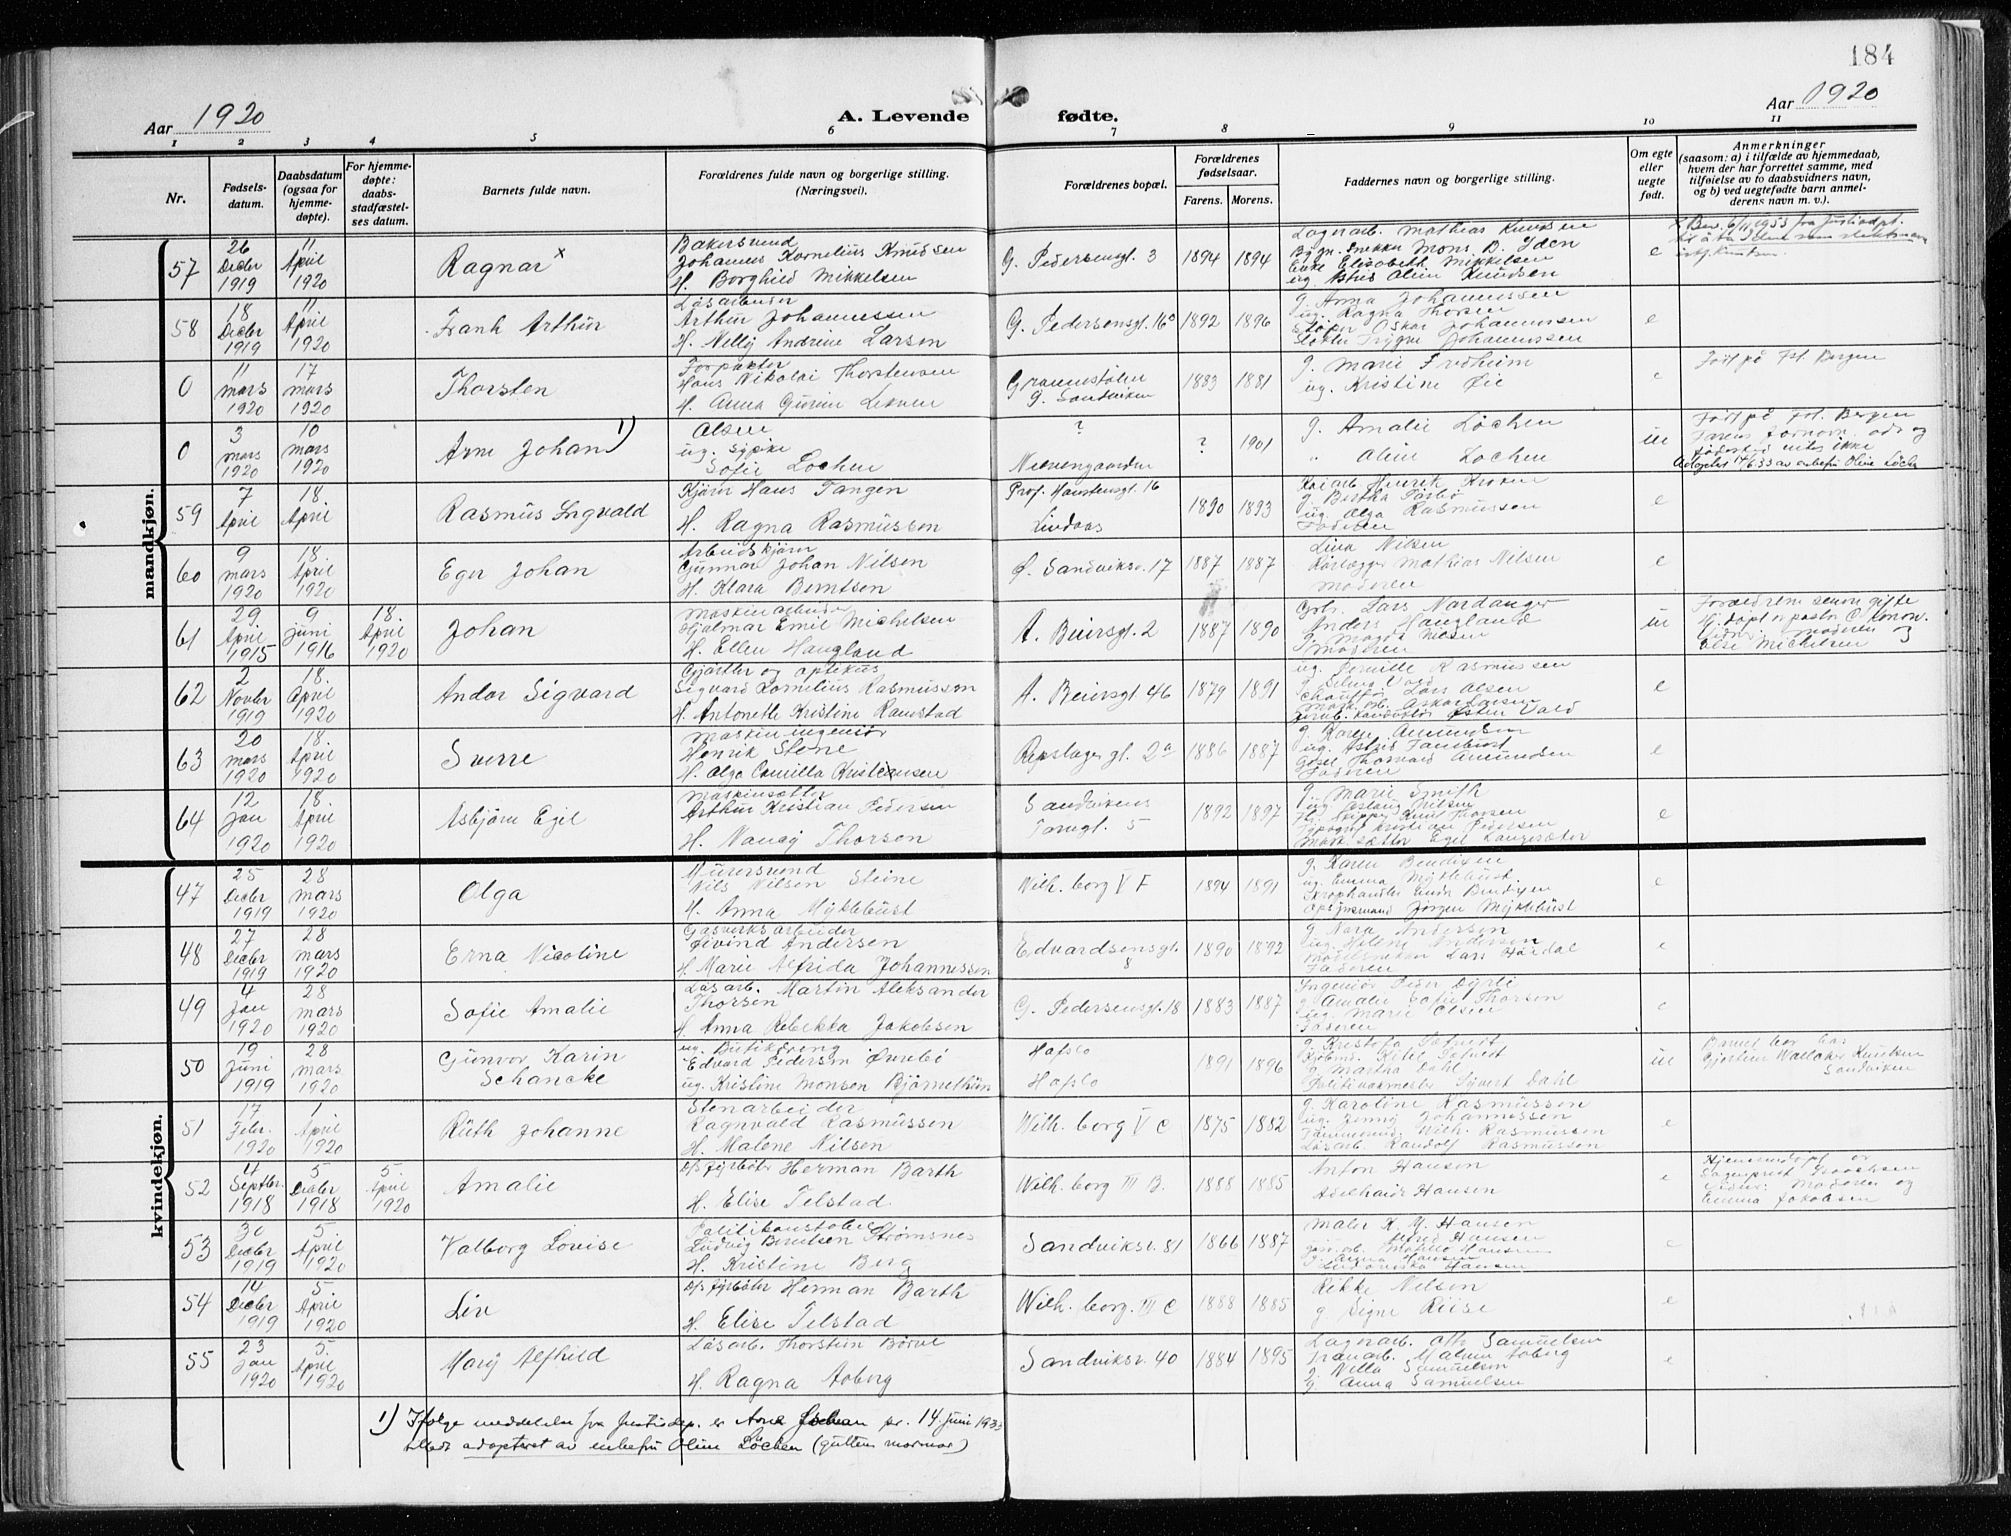 184
Aar 1920 A. Levende fødte. Aar 1920
1 2 3 4 5 6 7 8 9 10 11
Nr.
Fødsels-
datum.
Daabsdatum
(ogsaa for
hjemme-
døpte).
For hjemme-
døpte:
daabs-
stadfæstel-
ses datum.
Barnets fulde navn.
Forældrenes fulde navn og borgerlige stilling.
(Næringsvei).
Forældrenes bopæl.
Forældrenes
fødselsaar.
Farens. Morens.
Faddernes navn og borgerlige stilling.
Om egte
eller
uegte
født.
Anmerkninger
(saasom: a) i tilfælde av hjemmedaab,
hvem der har forrettet samme, med
tilføielse av to daabsvidners navn,
og b) ved uegtefødte barn anmel-
derens navn m. v.).
mandkjøn.
57
26 Decbr 1919
11 April 1920
Ragnar x
Bakersvend
Johannes Kornelius Knudsen
H. Borghild Mikkelsen
G. Pedersensgt. 3
1894 1894
Lagerarb. Mathias Knudsen
Elisabeth Mikkelsen
e
x Bev. 6/11 1953 fra Justisdpt.
58
18 Decbr 1919
11 April 1920
Frank Arthur
Løsarbeider
Arthur Johannessen
H. Nelly Andrine Larsen
G. Pedersensgt. 16a
1892 1896
g. Anna Johannessen
ug. Ragna Thorsen
Støper Oskar Johannessen
Trygve Johannessen
e
0
11 mars 1920
17 mars 1920
Thorsten
Forpakter
Hans Nikolai Thorstensen
H. Anna Gurine
G. Sandviken
1883 1881
g. Marie Fredheim
ug. Kristine Øie
e
Født på Fst. Bergen
0
3 mars 1920
10 mars 1920
Arne Johan 1)
Olsen
ug. Sypike
Sofie Lochen
?
? 1901
g. Amalie Løchen
" Aline Lochen
ue
Født på Fst. Bergen
Farens fornavn og
fødested vites ikke
Adoptert 14/6 33 av enkefru Oline Løchen
59
7 April
18. April
Rasmus Ingvald
Kjører Hans Tangen
H. Ragna Rasmussen
Prof. Hanstensgt. 16
Lindaas
1890 1893
ug. Olga Rasmussen
Faderen
e
60
9 mars 1920
18. April 1920
Eger Johan
Arbeidskjører
Gunnar Johan Nilsen
H. Klara Berntsen
Ø. Sandviksv. 17
1887 1887
Lina Nilsen
Rørlægger Mathias Nilsen
Moderen
e
61
29 April 1915
9 juni 1916
18. April 1920
Johan
Maskinarbeider
Hjalmar Emil Michelsen
H. Ellen Haugland
A. Beiersgt. 2
1887 1890
Lars Nordanger
Anders Haugland
g. Magda Olsen
Moderen
ue
Forældrene senere gifte
Hj. døpt av pastor C. Konow.
Vidner: moderen og
Else Michelsen
62
2 Novbr 1919
18. April 1920
Andor Sigvard
Gjørtler og optikus
Sigvard Cornelius Rasmussen
H. Antonette Kristine Ramstad
A. Beiersgt. 46
1879 1891
ug. Pernille Rasmussen
Chauffør Lars Olsen
e
63
20 mars 1920
18. April 1920
Sverre
Maskiningeniør
Henrik Stene
H. Olga Camilla Kristensen
Repslagergt. 2a
1886 1887
g. Karen Amundsen
ug. Astrid Fanebust
Thorvald Amundsen
Faderen
e
64
12 Jan 1920
18. April 1920
Asbjørn Egil
Maskinsætter
Arthur Kristian Pedersen
H. Nancy Thorsen
Sandvikens
Torvgt. 5
1892 1897
g. Marie Smith
ug. Aslaug Nilsen
Knut Thorsen
Typograf Kristian Pedersen
Mask. sætter Egil Langesæter
e
kvindekjøn.
47
25 Decbr 1919
28 mars 1920
Olga
Murersvend
Nils Nilsen Steine
H. Anna Myklebust
Wilh. borg V F
1894 1891
g. Karen Bendixen
ug. Emma Myklebust.
Opsynsmand Jørgen Myklebust
e
48
27 Decbr 1919
28 mars 1920
Erna Nicoline
Gasverksarbeider
Øivind Andersen
H. Marie Alfrida Johannessen
Edvardsensgt. 8
1890 1892
g. Nora Andersen
ug. Helene Andersen
Modelsnekker Lars Hordal
Faderen
e
49
4 Jan 1920
28 mars 1920
Sofie Amalie
Løsarb. Martin Aleksander
Thorsen
H. Anna Rebekka Jakobsen
G. Pedersensgt. 18
1883 1887
Ingeniør Peder Dyrli
g. Amalie Sofie Thorsen
ug. Marie Olsen
Faderen
e
50
19 Juni 1919
28 mars 1920
Gunvor Karin
Schancke
ug. Butikdreng
Edvard Pedersen Øvrebø
ug. Kristine Monsen Bjørnethun
Hafslo
Hafslo
1891 1896
g. Martha Dahl
Politivagtmester Sjvert Dahl
ue
Barnet bor hos
Gjørtler Wallace Knudsen
Sandviken
51
17 Febr. 1920
1 April 1920
Ruth Johanne
Stenarbeider
Ragnvald Rasmussen
H. Malene Nilsen
Wilh. borg V C
1875 1882
g. Karoline Rasmussen
ug. Jenny Johannessen
Tømmermd. Wilh. Rasmussen
Løsarb. Randolf Rasmussen
e
52
4 Septbr. 1918
5 Decbr 1918
5. April 1920
Amalie
o/s fyrbøter Herman Barth
H. Elise Telstad
Wilh. borg III B.
1888 1885
Anton Hansen
Adelheide Hansen
e
Hjemmedøpt av
Sogneprest Isaachsen
Vidner: Moderen og
Emma Jakobsen
53
30 Decbr 1919
5. April 1920
Valborg Lovise
Politikonstabel
Ludvig Berntsen Strømsnes
H. Kristine Berg
Sandviksv. 81
1866 1887
Maler K. M. Hansen
Astrid Hansen
e
54
14 Decbr 1919
5. April 1920
Liv
o/s fyrbøter Herman Barth
H. Elise Telstad
Wilh. borg. III C
1888 1885
Rikke Nilsen
g Signe Riise
e
55
23 Jan 1920
5. April 1920
Mary Alfhild
Løsarb. Thorstein Børve
H. Ragna Aoberg
Sandviksv. 40
1884 1895
Lagerarb. Oth. Samuelsen
g Nilla Samuelsen
g Anna Samuelsen
e
1) Ifølge meddelelse fra Justisdep. er Arne Johan pr. 14. juni 1933
tillatt adopteret av enkefru Oline Løchen (guttens mormor)